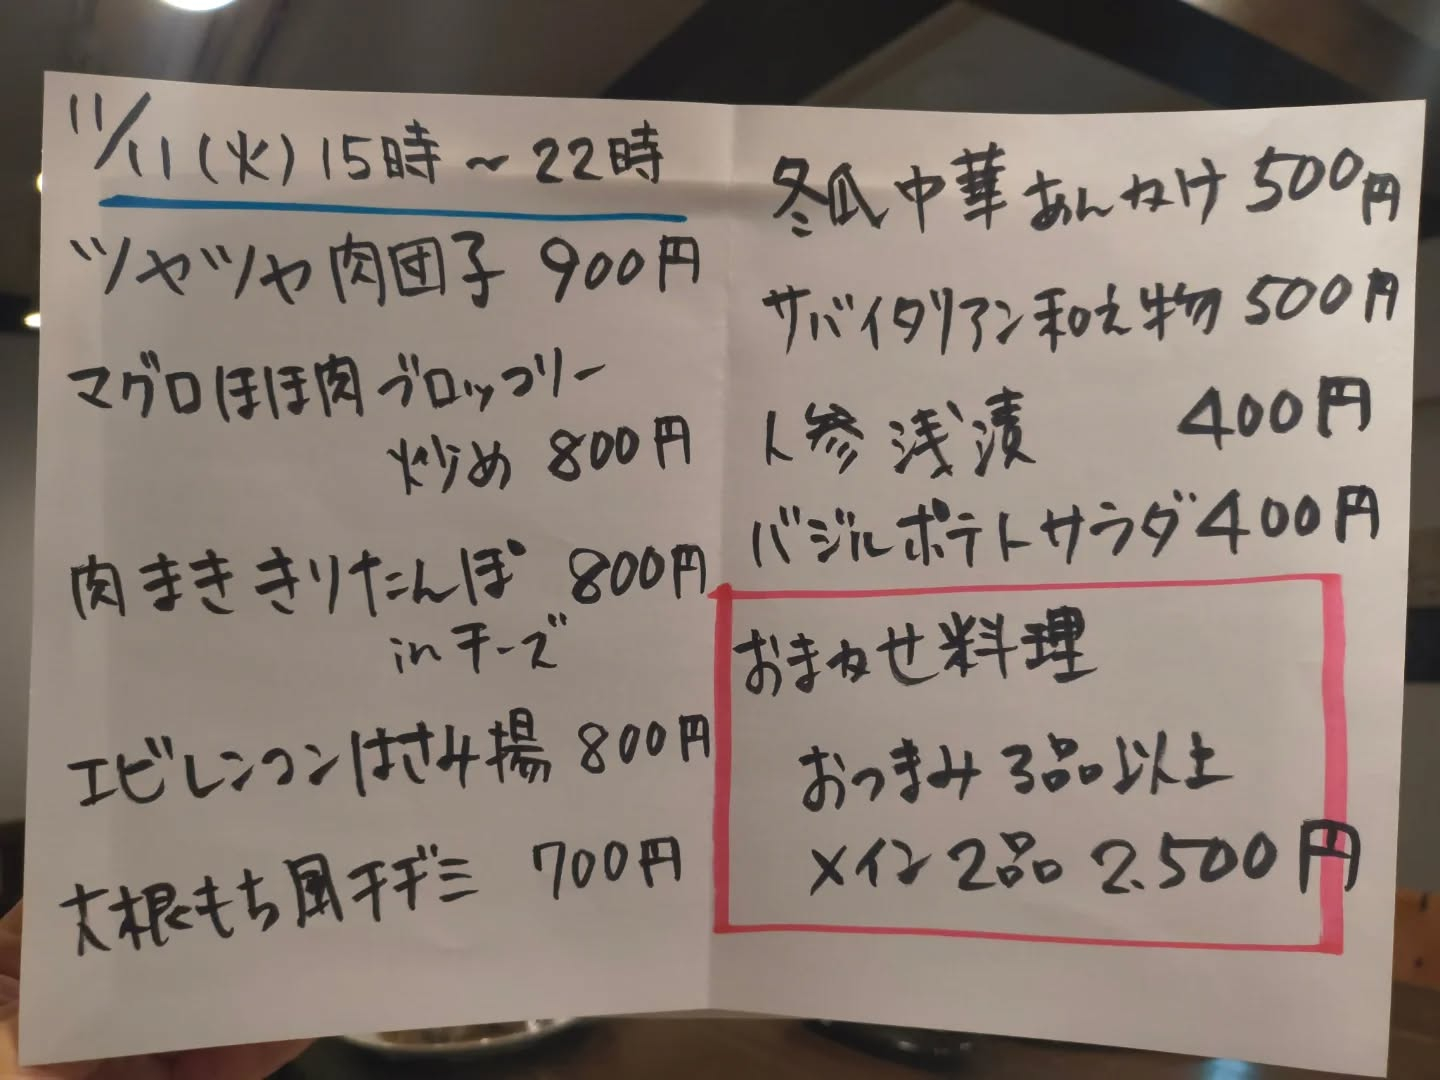 11/11(火)15時～22時
ツヤツヤ肉団子 900円
マグロほほ肉ブロッコリー
炒め 800円
肉まききりたんぽ 800円
inチーズ
エビレンコンはさみ揚 800円
大根もち風チヂミ 700円
冬瓜中華あんかけ 500円
サバイタリアン和え物 500円
人参浅漬 400円
バジルポテトサラダ 400円
おまかせ料理
おつまみ3品以上
メイン2品 2.500円